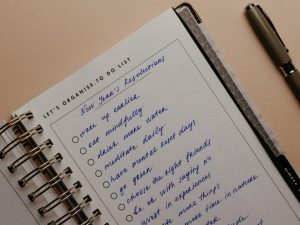 LET'S ORGANISE: TO DO LIST
New Year's Resolutions
wake up earlier
eat mindfully
drink more water
meditate daily
have mental reset days
go green
choose the right friends
be ok with saying no
invest in experiences
more things
more time in nature